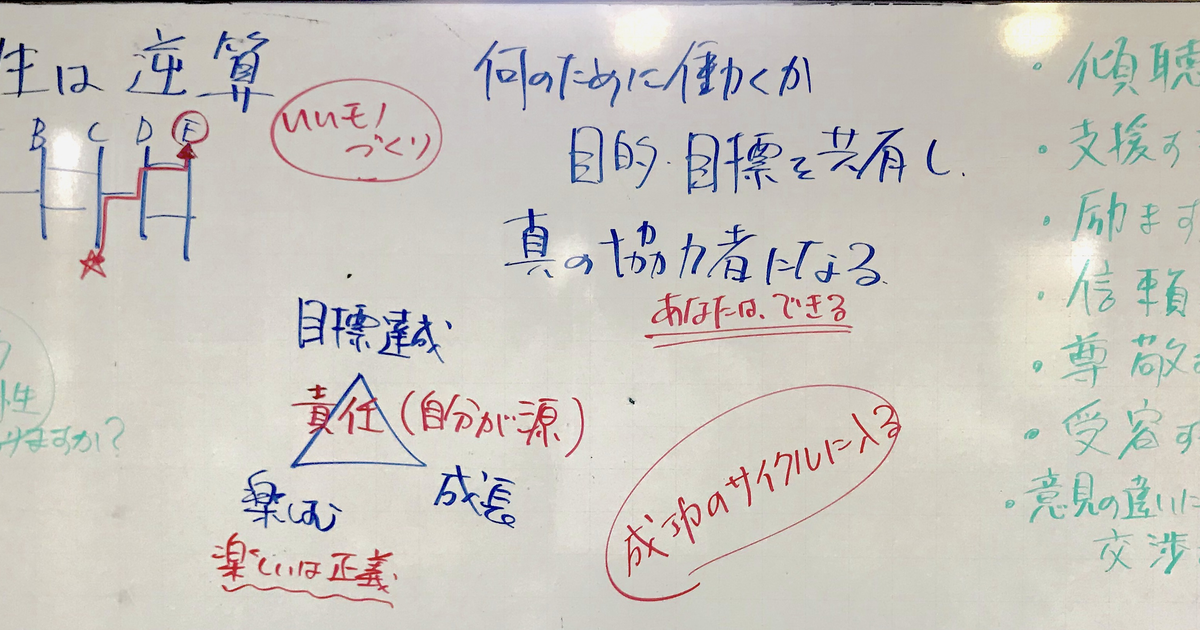 生は 逆算
B C D E
いいモノ
づくり
何のために働くか
目的・目標を共有し、
真の協力者になる
あなたは、できる
目標達成
責任(自分が源)
楽しむ
成長
楽しいは正義
成功のサイクルに入る
性
みますか?
・傾聴
・支援す
・励ます
・信頼
・尊敬
・受容す
・意見の違いに
交渉